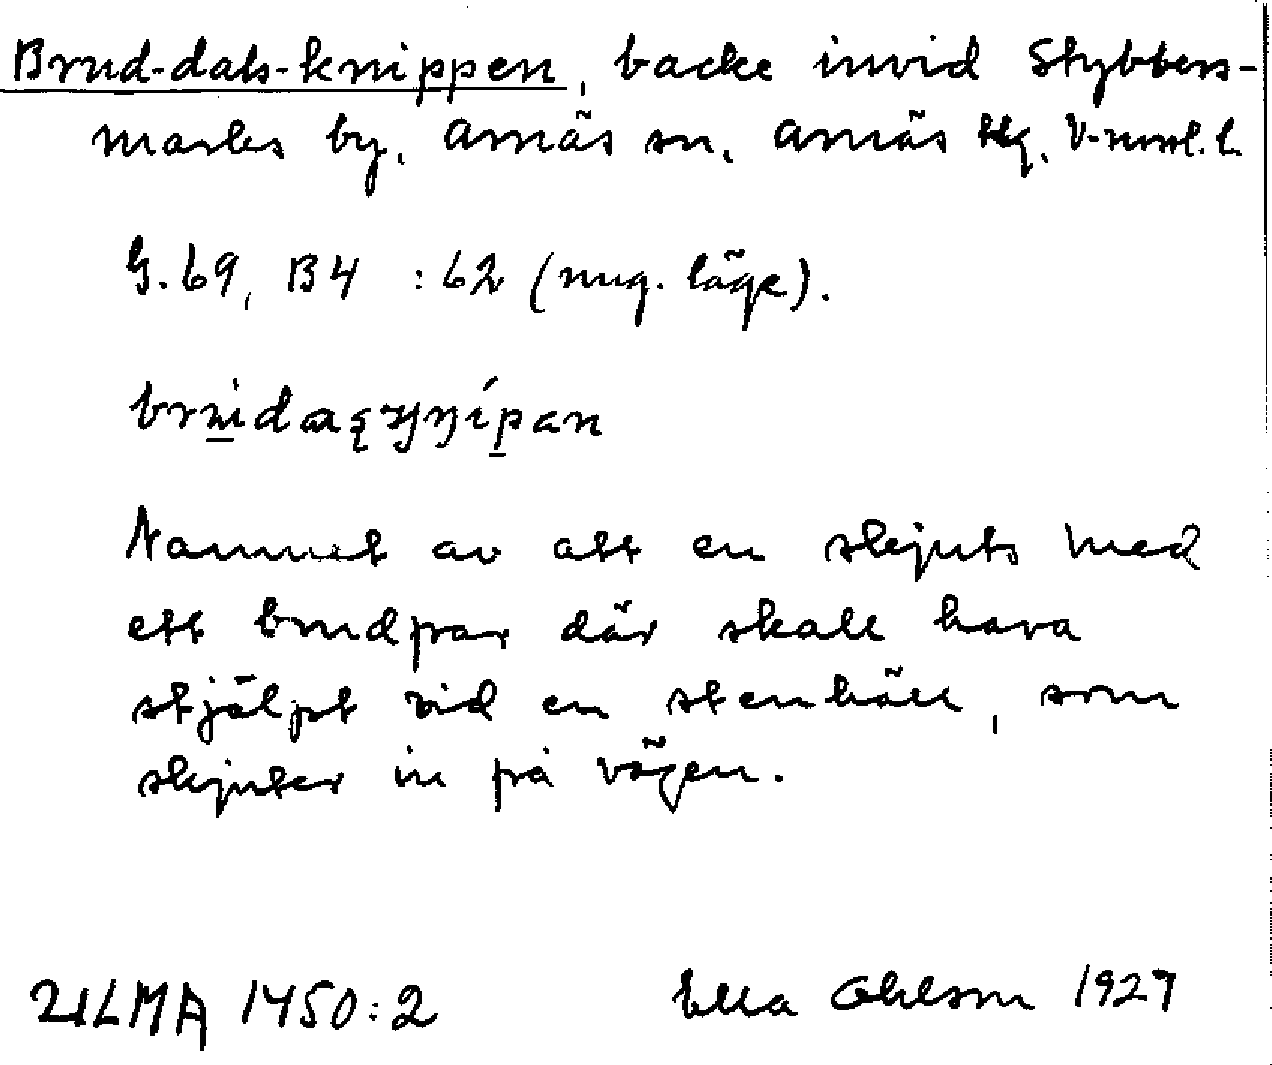 Brud-dals-knippen, backe invid Stybbers-
marks by, Arnäs sn, Arnäs tlg, V-norrl. l.
G.69, B4 :62 (ung. läge).
Namnet av att en skjuts med
ett brudpar där skall hava
stjälpt vid en stenhäll, som
skjuter in på vägen.
ULMA 1450:2 Ella Ohlson 1927